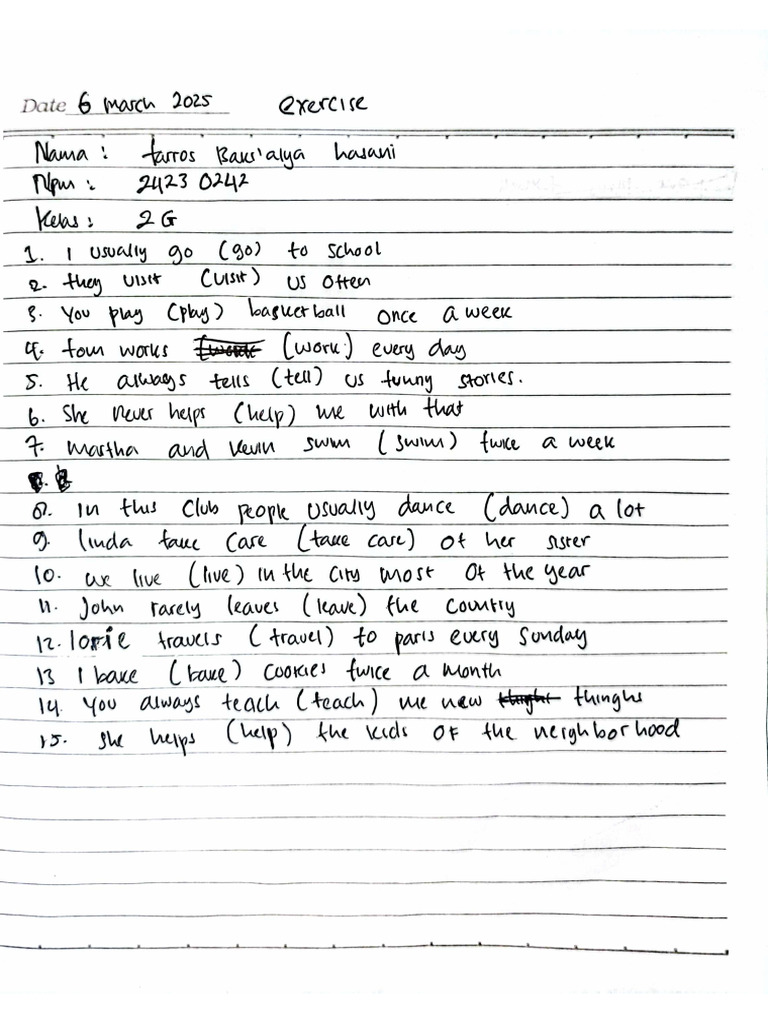 Date 6 march 2025 exercise
Nama : farros Baus'alya hasani
Npm : 2423 0242
Kelas : 2 G
1. I usually go (go) to school
2. they visit (visit) us often
3. You play (play) basketball once a week
4. tom works (work) every day
5. He always tells (tell) us funny stories.
6. She never helps (help) me with that
7. Martha and Kevin swim (swim) twice a week
8. In this club people usually dance (dance) a lot
9. linda take care (take care) of her sister
10. we live (live) in the city most of the year
11. John rarely leaves (leave) the country
12. lorie travels (travel) to paris every Sunday
13 I bake (bake) cookies twice a month
14. You always teach (teach) me new thinghs
15. she helps (help) the kids of the neighborhood